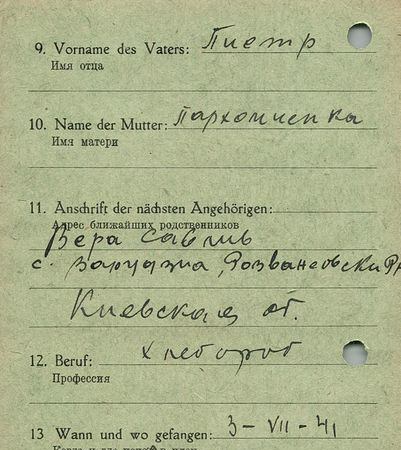 9. Vorname des Vaters: Пиетр
Имя отца
10. Name der Mutter: Пархомиенка
Имя матери
11. Anschrift der nächsten Angehörigen:
Адрес ближайших родственников
Вера
с.
Киевская об.
12. Beruf: хлебороб
Профессия
13 Wann und wo gefangen: 3-VII-41